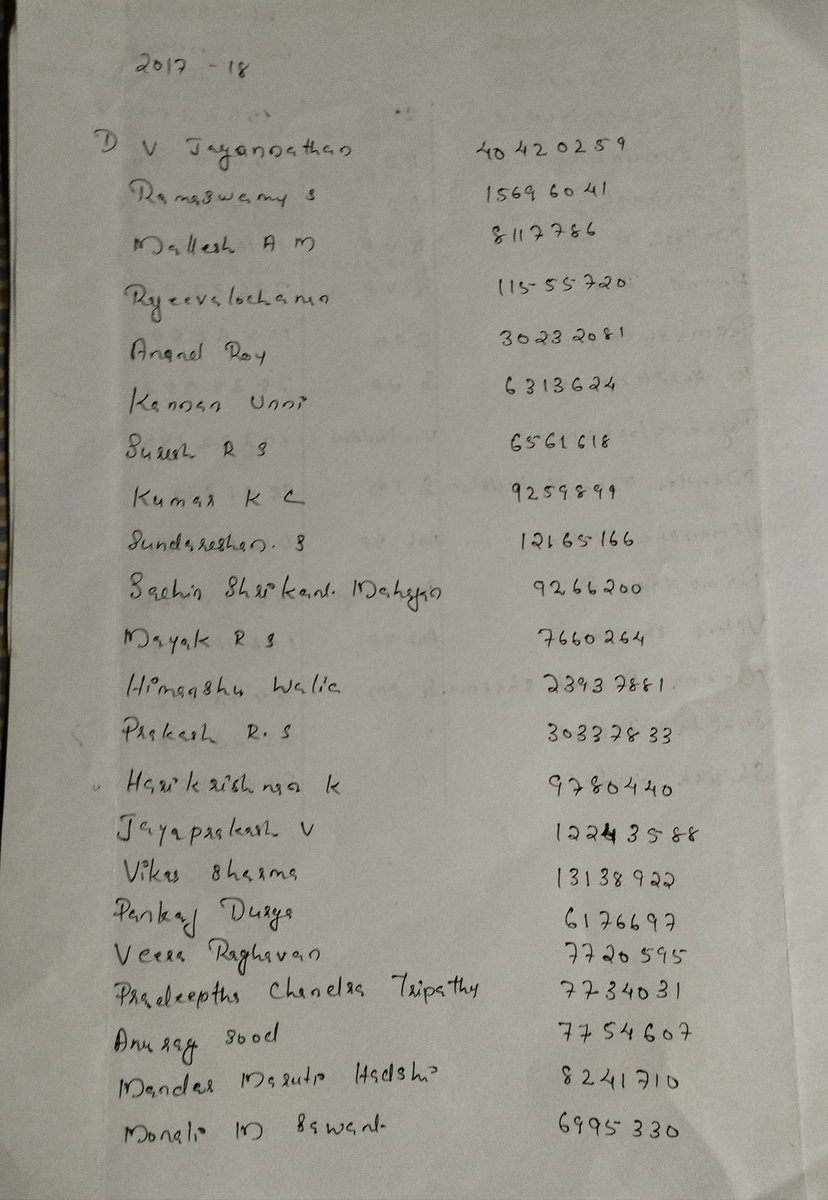 2017 - 18
D V Jagannathan 40420259
Ramaswamy S 15696041
Mallesh A M 8117786
Rajeevalochana 11555720
Anand Roy 30232081
Kannan Unni 6313624
Suresh R S 6561618
Kumar K C 9259899
Sundareshan. S 12165166
Sachin Shrikant Mahajan 9266200
Mayak R S 7660264
Himanshu Walia 23937881
Prakash R. S 30337833
Harikrishnan K 9780440
Jayaprakash V 12243588
Vikas Sharma 13138922
Pankaj Durga 6176697
Veera Raghavan 7720595
Pradeeptha Chandra Tripathy 7734031
Anurag Sood 7754607
Mandar Maruti Hadshi 8241710
Monali M Sawant 6995330